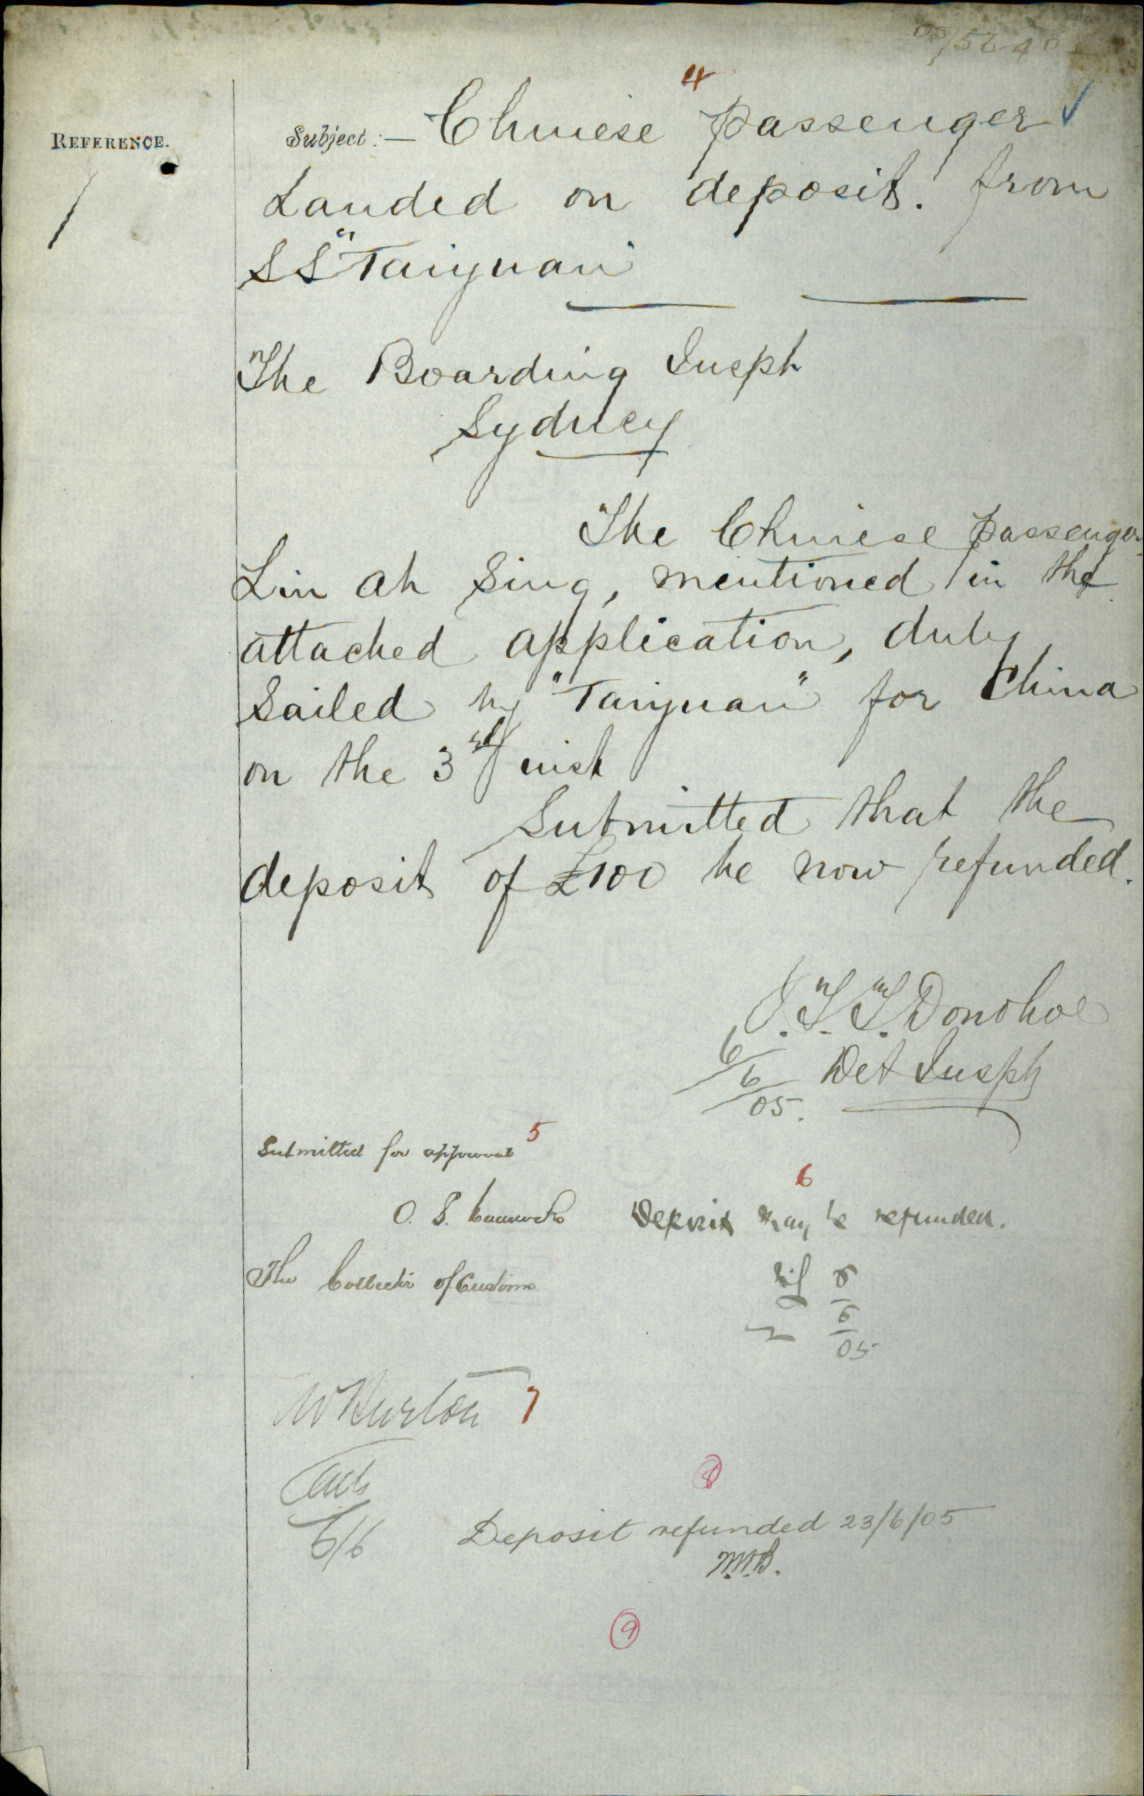 4
REFERENCE.
Subject:— Chinese passenger
Landed on deposit. from
SS "Taiyuan"
The Boarding Inspr
Sydney
The Chinese passenger
Lin Ah Sing, mentioned in the
attached application, duly
sailed by "Taiyuan" for China
on the 3rd inst
Submitted that the
deposit of £100 be now refunded.
J. T. T. Donohoe
6/6/05. Det Inspr
Submitted for approval 5
6
O. S. Deposit may be refunded.
The Collector of Customs
6/6/05
7
6/6
8
Deposit refunded 23/6/05
9